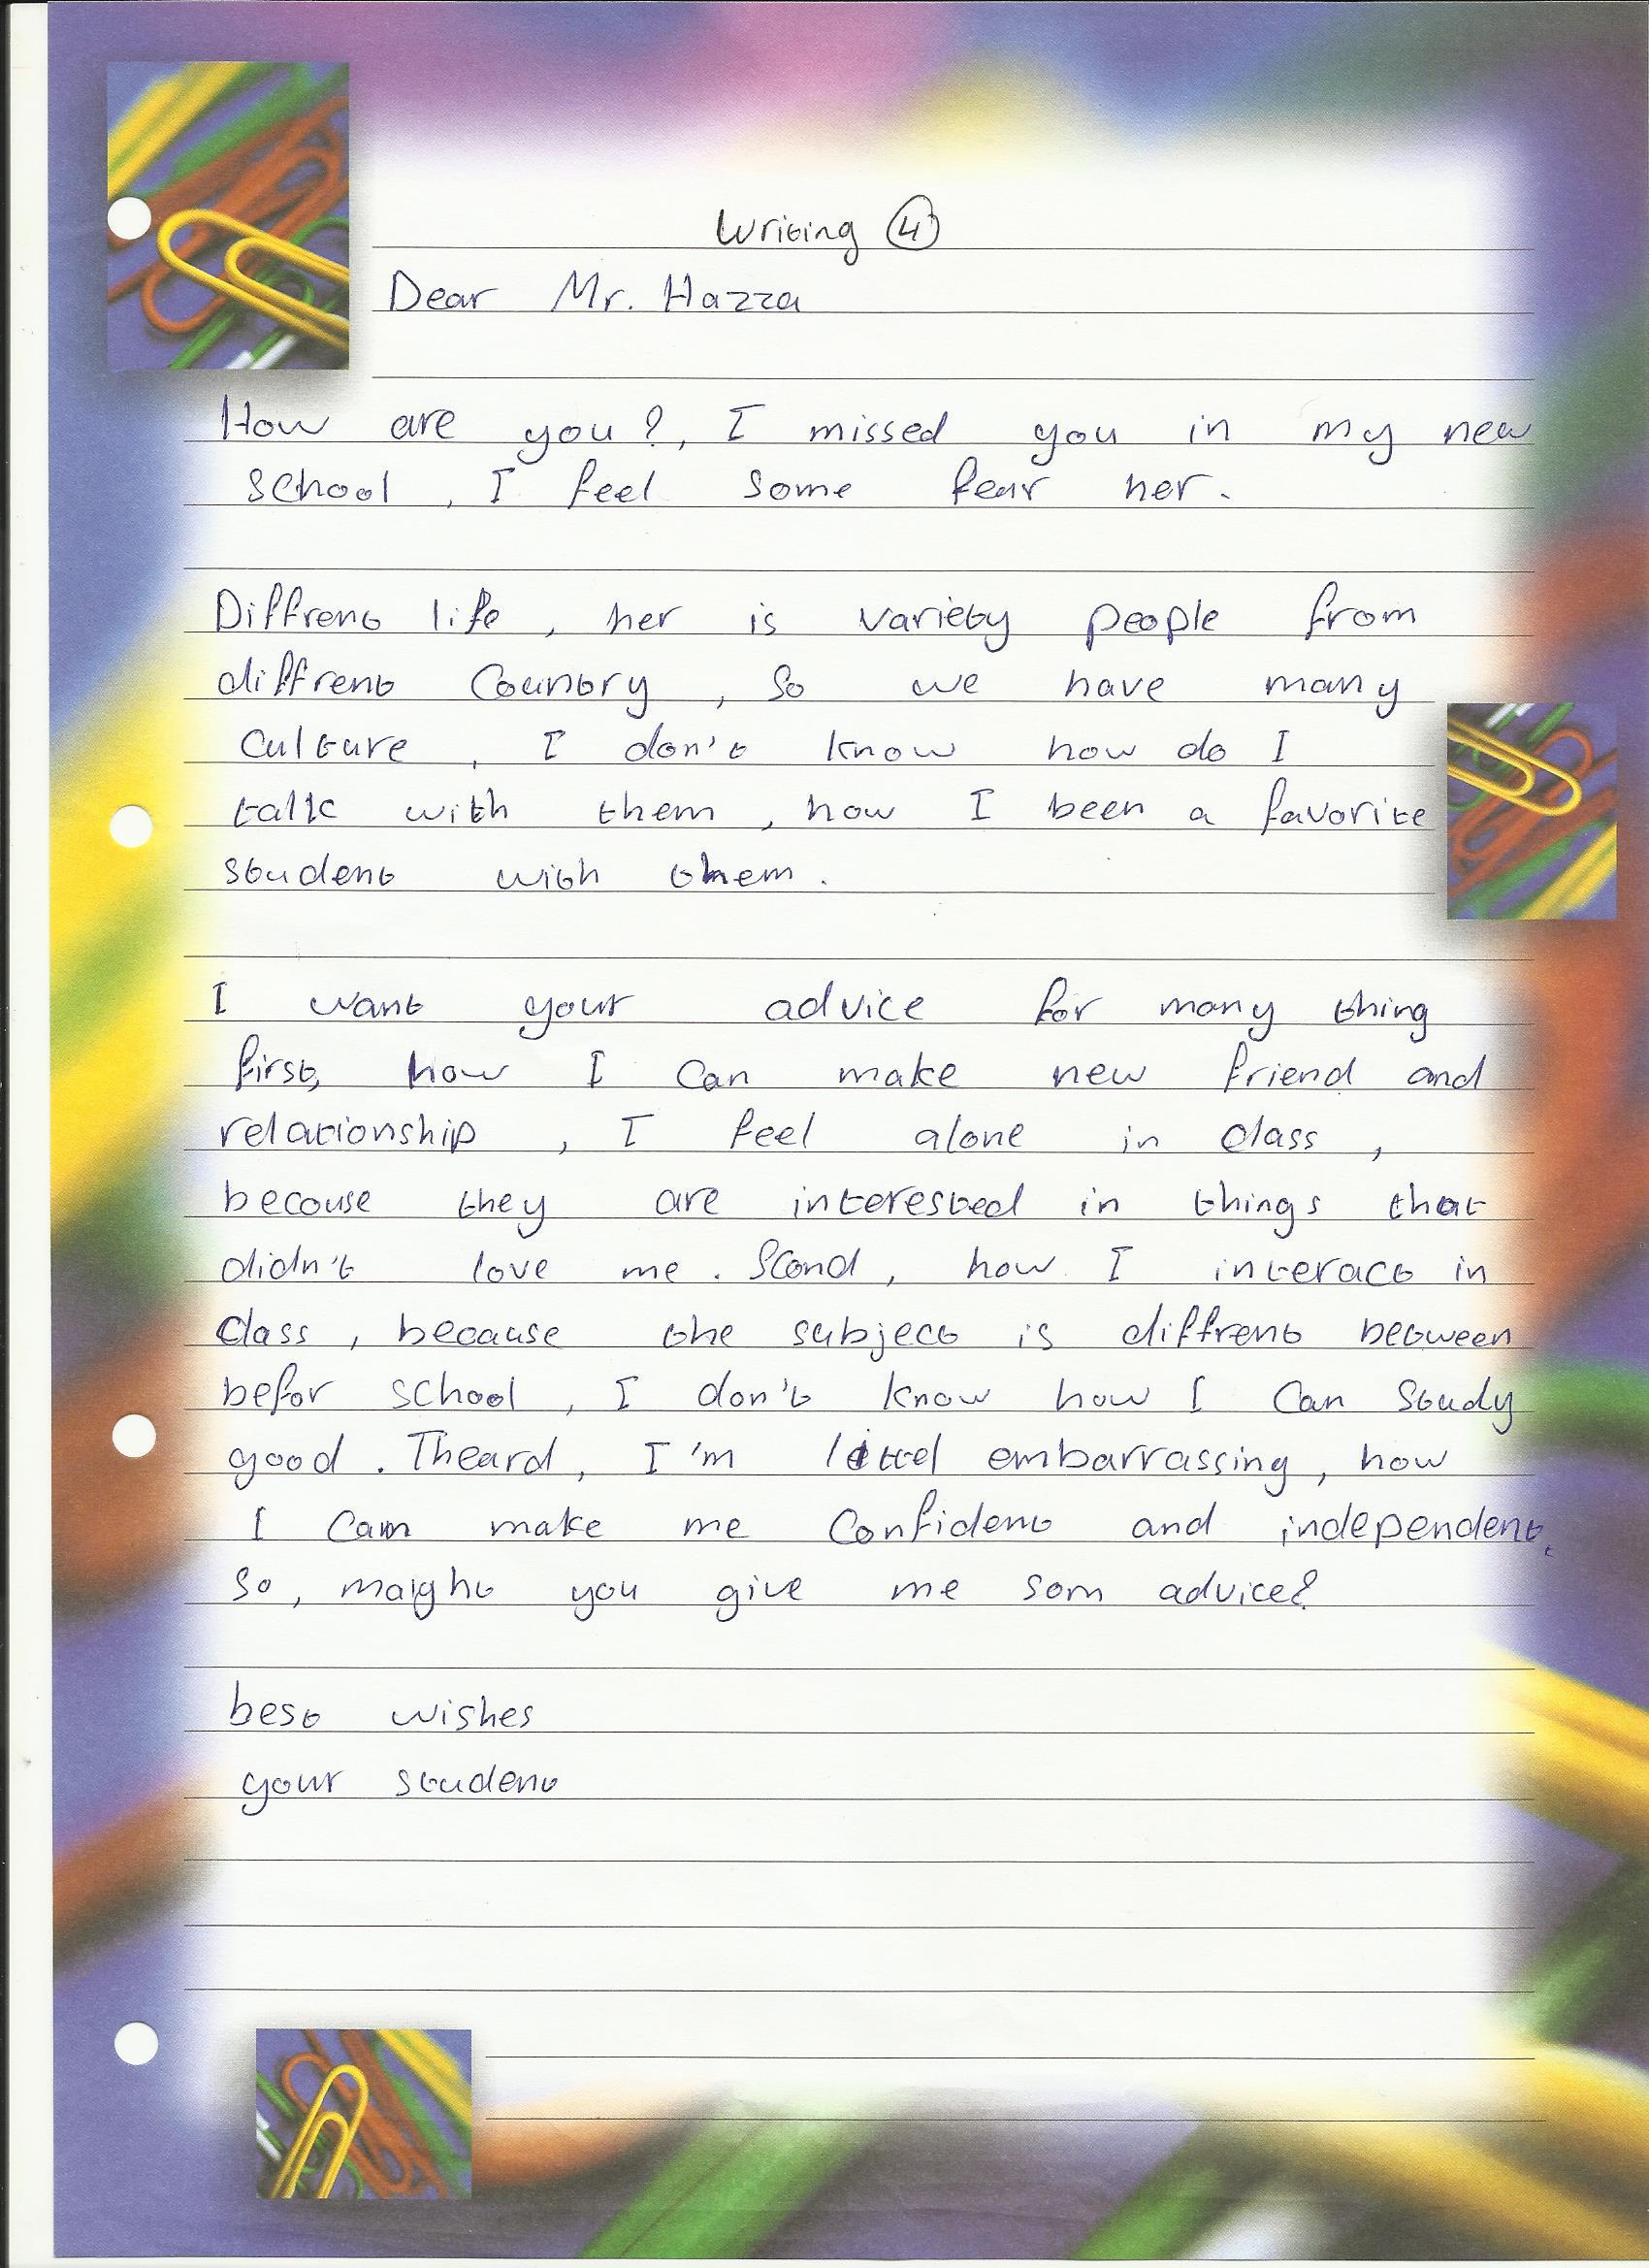 Writing ④
Dear Mr. Hazza
How are you?, I missed you in my new
school, I feel some fear her.
Diffrent life, her is variety people from
diffrent Country, so we have many
culture, I don't know how do I
talk with them, how I been a favorite
student with them.
I want your advice for many thing
first, how I can make new friend and
relationship, I feel alone in class,
becouse they are interested in things that
didn't love me. Scond, how I interact in
class, because the subject is diffrent between
befor school, I don't know how I can study
good. Theard, I'm littel embarrassing, how
I can make me confident and independent.
so, maight you give me som advice?
best wishes
your student